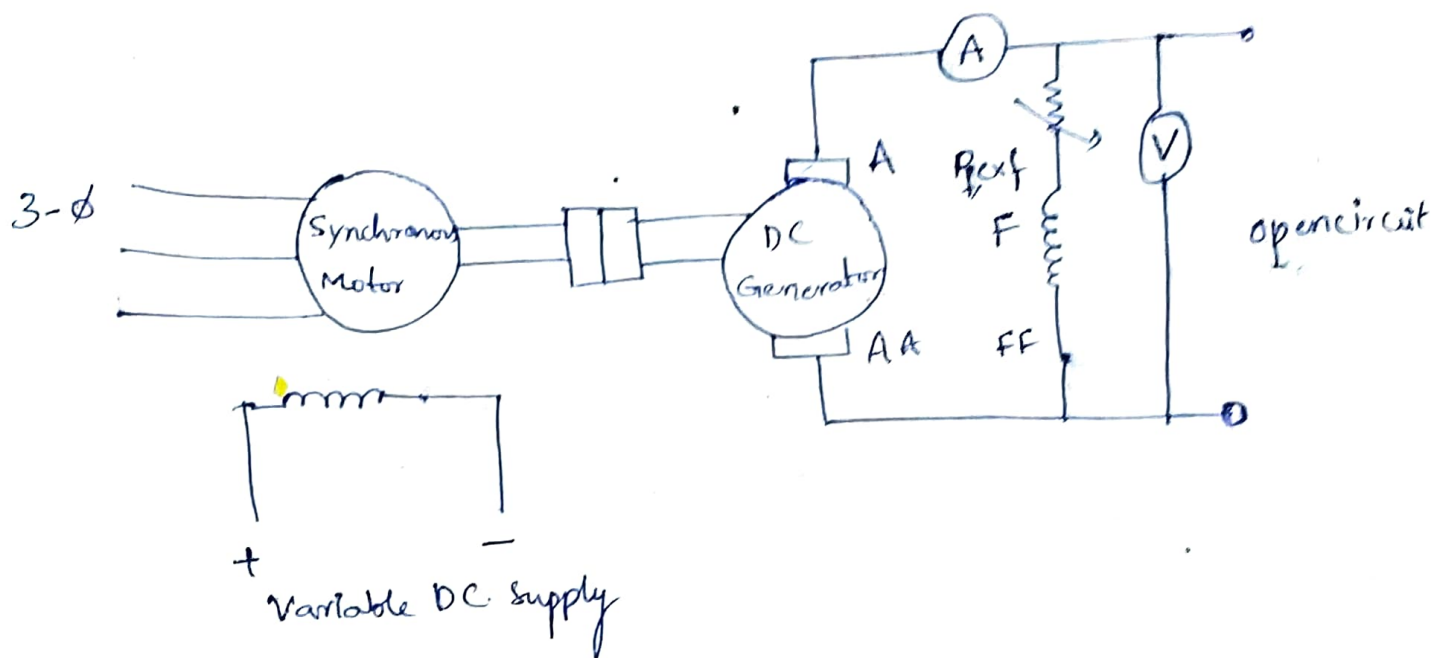 3-ϕ
Synchronous
Motor
DC
Generator
A
A
AA
F
FF
V
opencircuit
+
-
Variable DC Supply